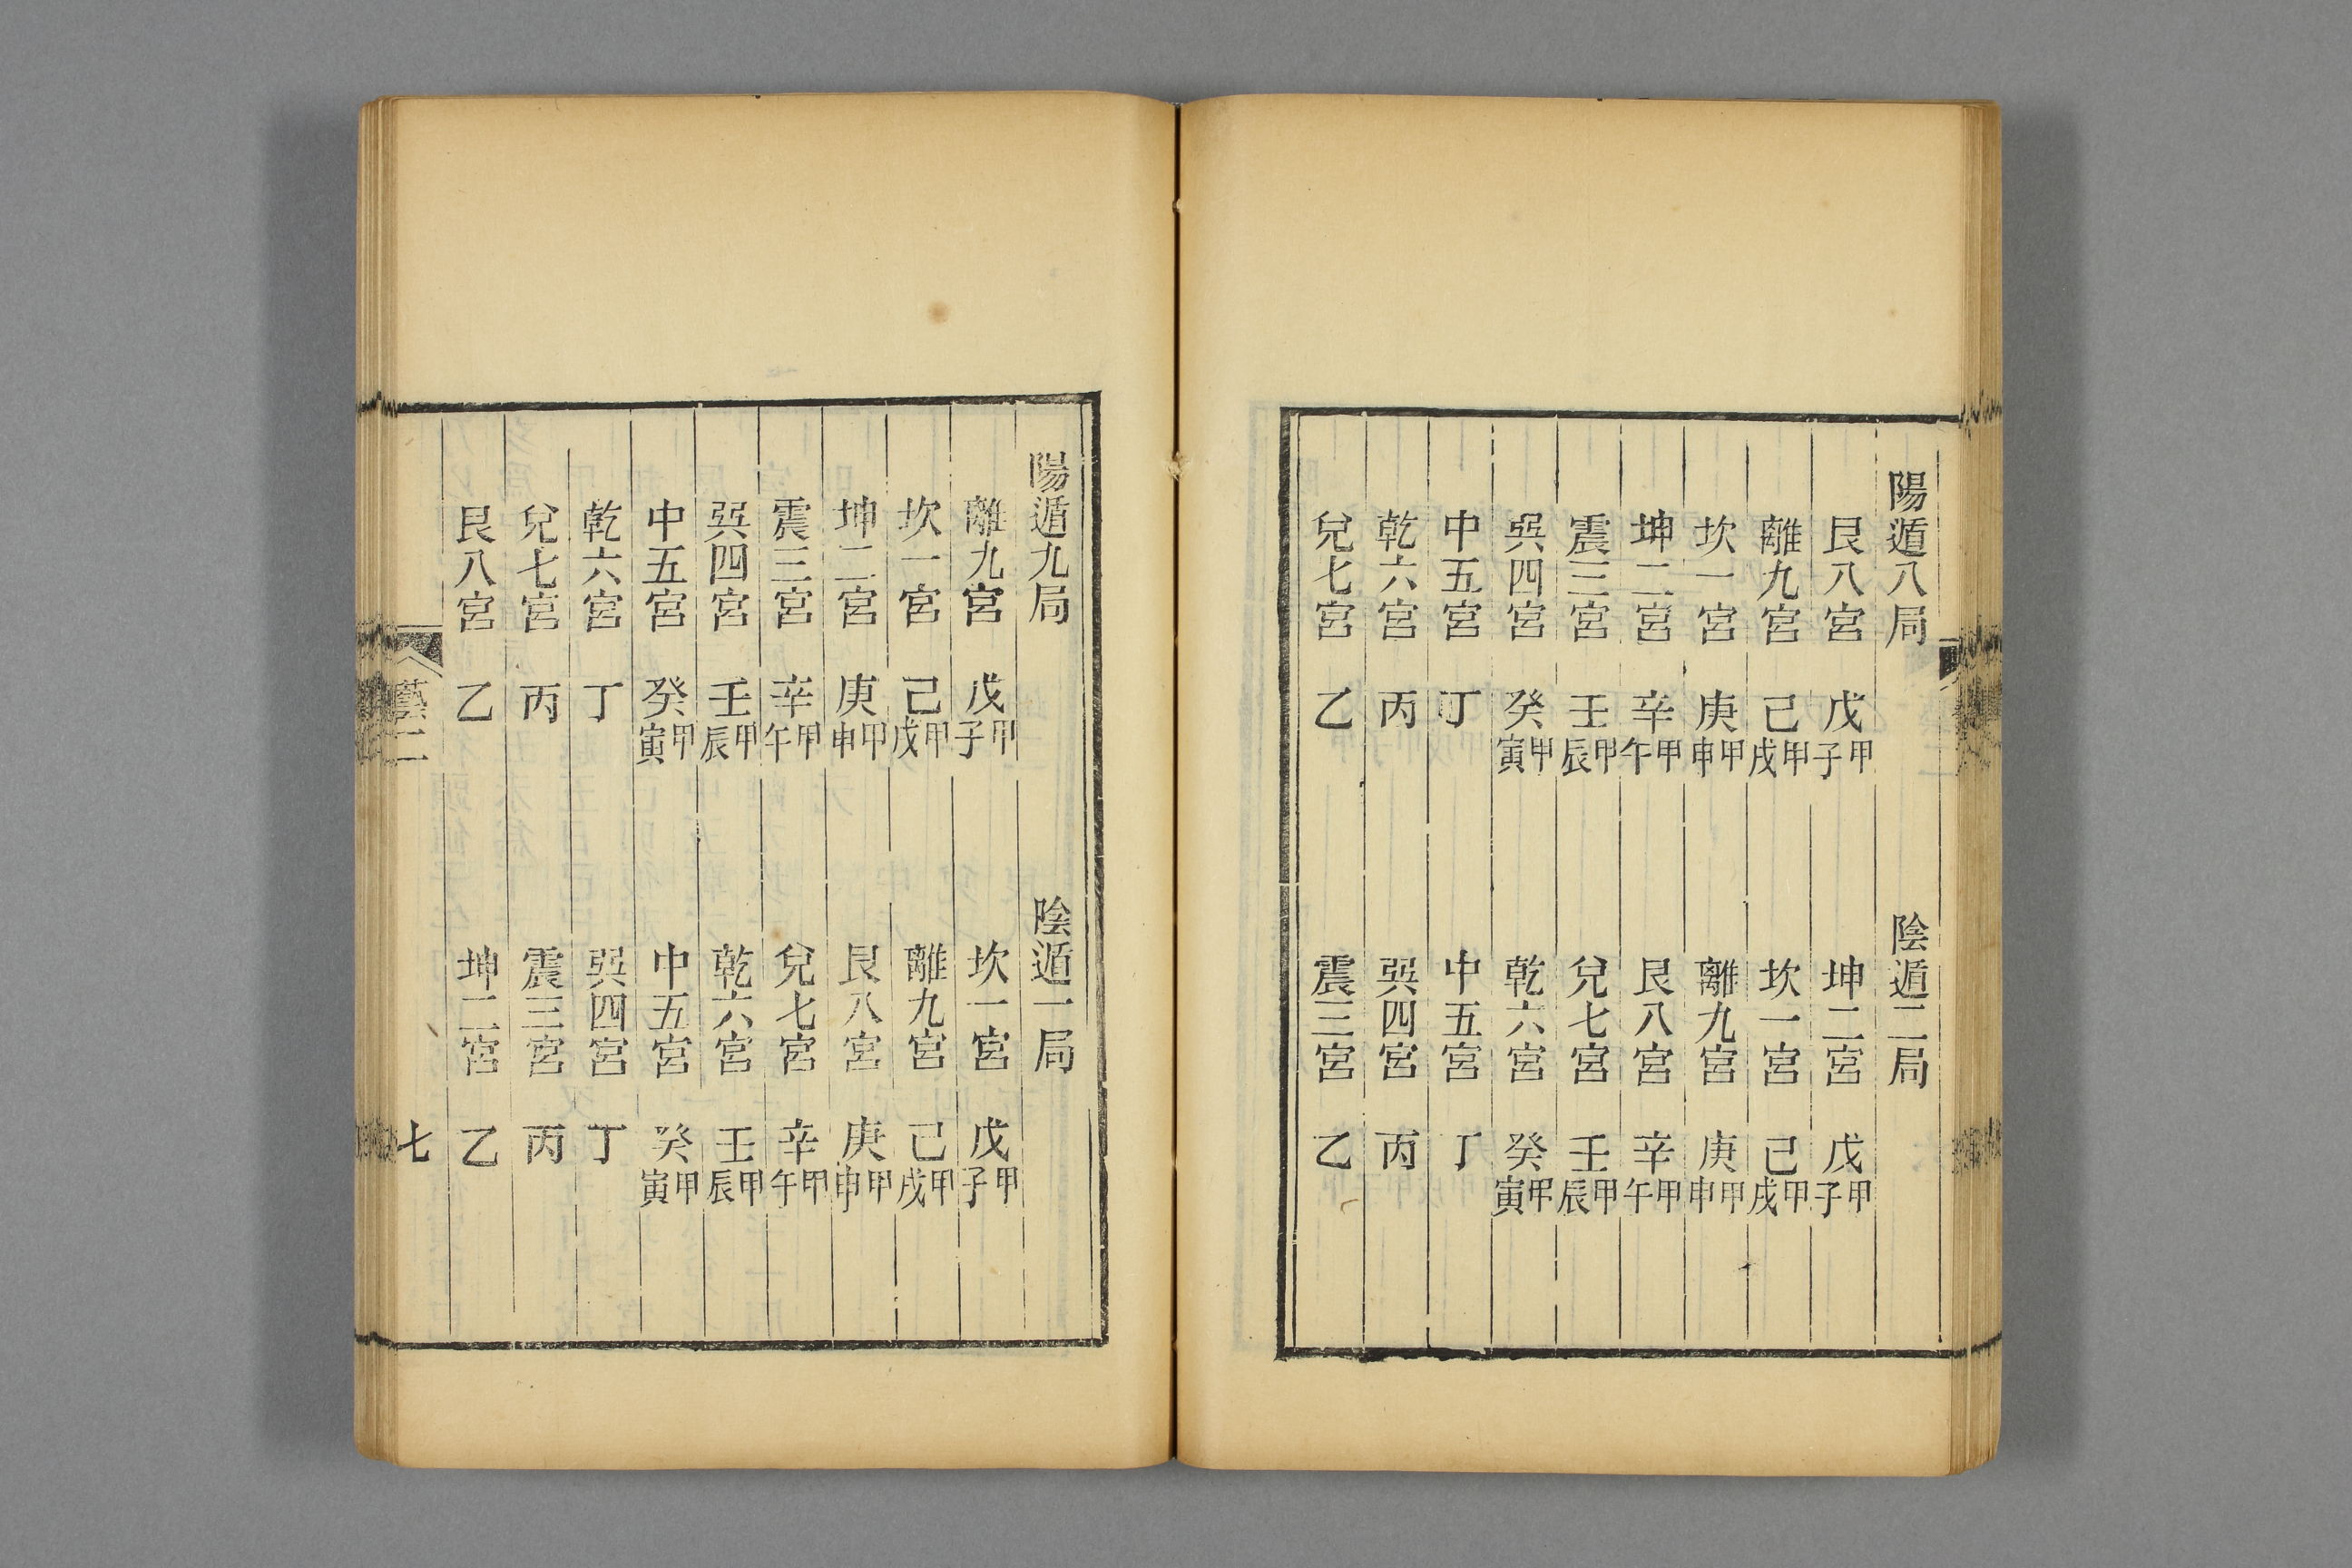 陽遁八局　陰遁二局
艮八宮　戊甲子　坤二宮　戊甲子
離九宮　己甲戌　坎一宮　己甲戌
坎一宮　庚甲申　離九宮　庚甲申
坤二宮　辛甲午　艮八宮　辛甲午
震三宮　壬甲辰　兌七宮　壬甲辰
巽四宮　癸甲寅　乾六宮　癸甲寅
中五宮　丁　中五宮　丁
乾六宮　丙　巽四宮　丙
兌七宮　乙　震三宮　乙
陽遁九局　陰遁一局
離九宮　戊甲子　坎一宮　戊甲子
坎一宮　己甲戌　離九宮　己甲戌
坤二宮　庚甲申　艮八宮　庚甲申
震三宮　辛甲午　兌七宮　辛甲午
巽四宮　壬甲辰　乾六宮　壬甲辰
中五宮　癸甲寅　中五宮　癸甲寅
乾六宮　丁　巽四宮　丁
兌七宮　丙　震三宮　丙
艮八宮　乙　坤二宮　乙
藝二　七